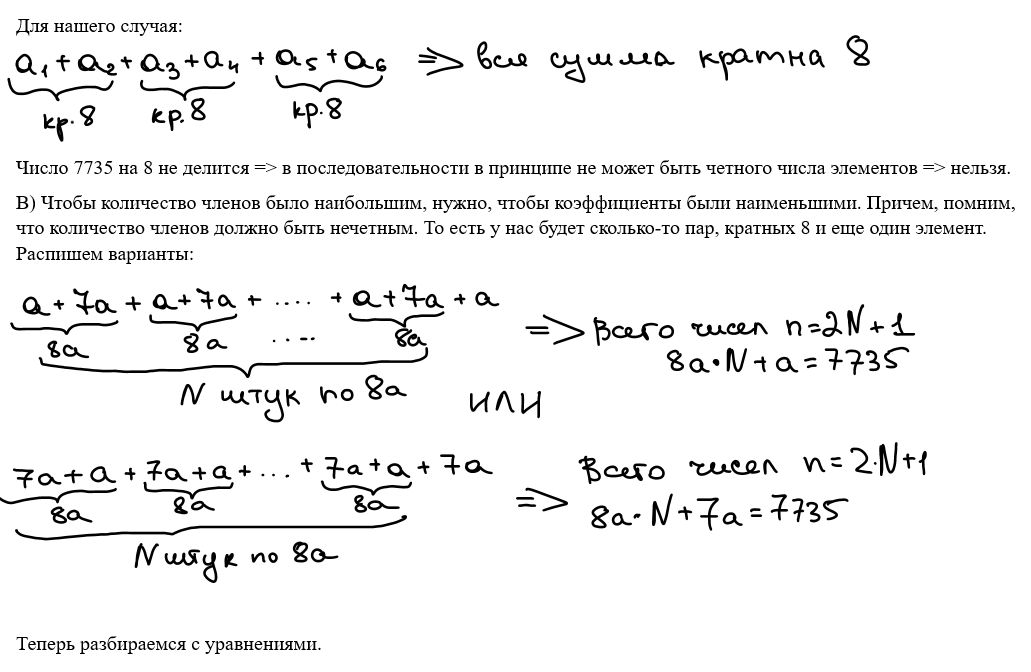 Для нашего случая:
a₁+a₂+a₃+a₄+a₅+a₆ => вся сумма кратна 8
кр.8 кр.8 кр.8
Число 7735 на 8 не делится => в последовательности в принципе не может быть четного числа элементов => нельзя.
В) Чтобы количество членов было наибольшим, нужно, чтобы коэффициенты были наименьшими. Причем, помним,
что количество членов должно быть нечетным. То есть у нас будет сколько-то пар, кратных 8 и еще один элемент.
Распишем варианты:
a+7a+a+7a+....+a+7a+a => Всего чисел n=2N+1
8a 8a .... 8a 8a•N+a=7735
N штук по 8a ИЛИ
7a+a+7a+a+...+7a+a+7a => Всего чисел n=2·N+1
8a 8a 8a 8a·N+7a=7735
N штук по 8a
Теперь разбираемся с уравнениями.